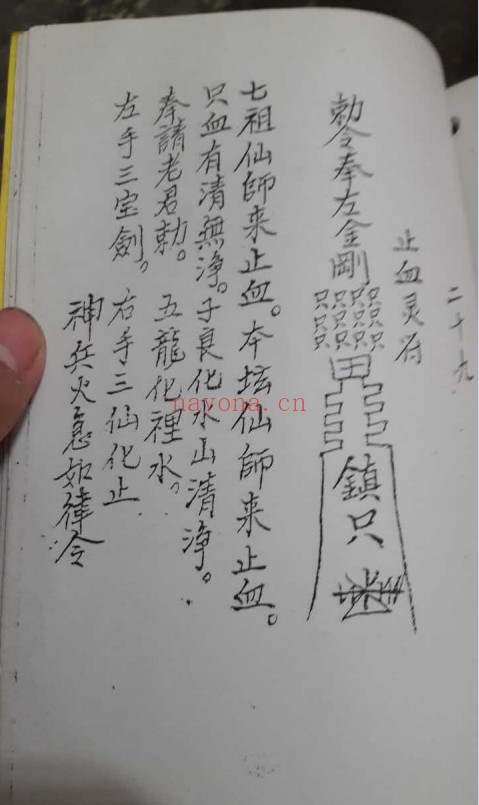 二十九
止血灵符
勅令奉左金剛
只只只只
只只只只
只只只只
田
鎮只
七祖仙師来止血。本坛仙師来止血。
只血有清無净。子良化水山清净。
奉請老君勅。五龍化裡水。
左手三宝劍。右手三仙化止
神兵火急如律令
nayona.cn